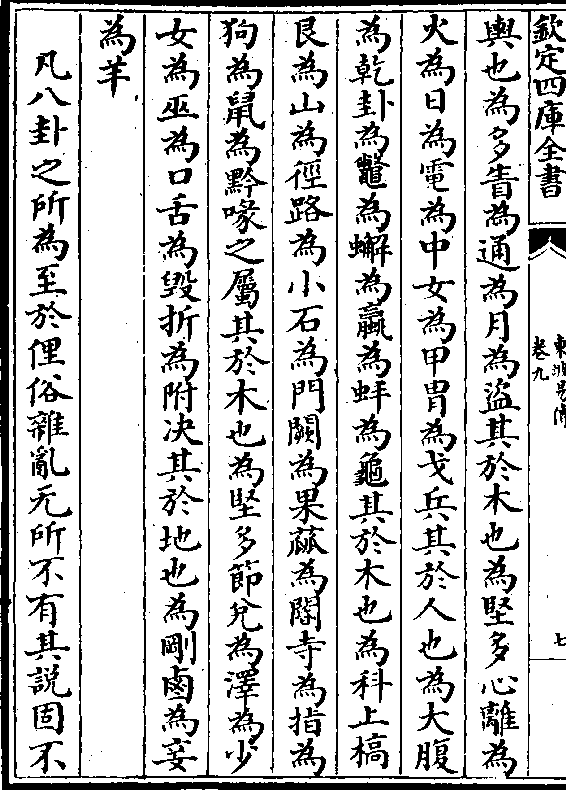 欽定四庫全書
東坡易傳
卷九
七
輿也為多眚為通為月為盜其於木也為堅多心離為
火為日為電為中女為甲胄為戈兵其於人也為大腹
為乾卦為鼈為蠏為蠃為蚌為龜其於木也為科上槁
艮為山為徑路為小石為門闕為果蓏為閽寺為指為
狗為鼠為黔喙之屬其於木也為堅多節兌為澤為少
女為巫為口舌為毀折為附決其於地也為剛鹵為妾
為羊
凡八卦之所為至於俚俗雜亂无所不有其説固不